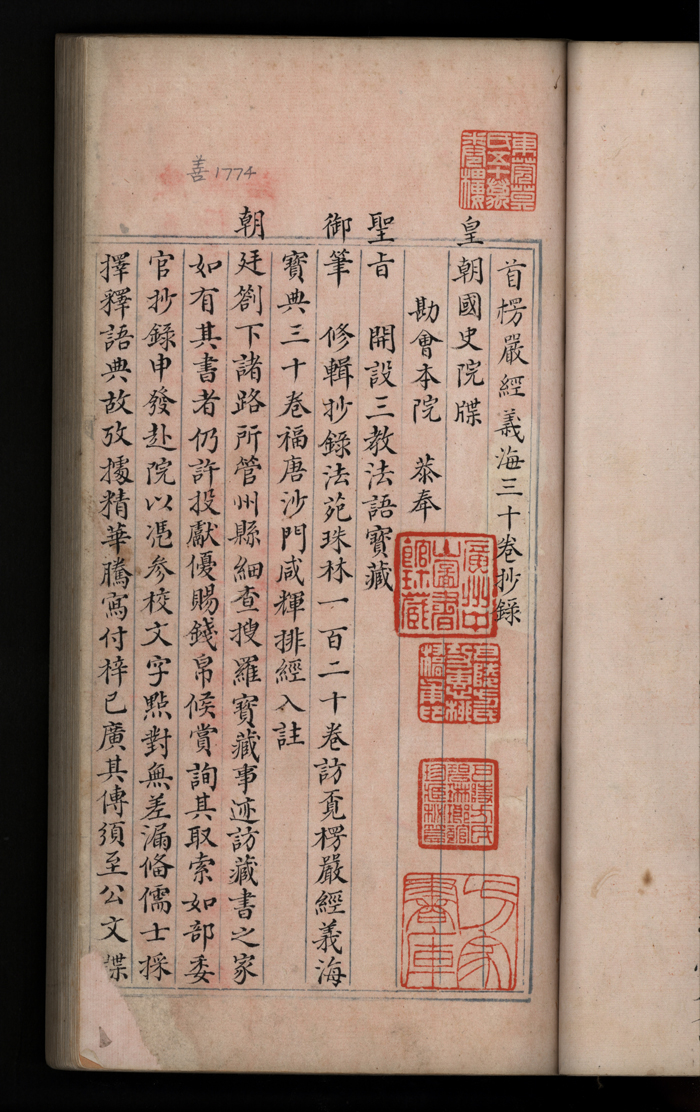 首楞嚴經義海三十卷抄錄
皇朝國史院牒
勘會本院　恭奉
聖旨　開設三教法語寶藏
御筆　修輯抄錄法苑珠林一百二十卷訪覓楞嚴經義海
寶典三十卷福唐沙門咸輝排經入註
朝廷劄下諸路所管州縣細查搜羅寶藏事迹訪藏書之家
如有其書者仍許投獻優賜錢帛候賞詢其取索如部委
官抄錄申發赴院以憑參校文字點對無差漏俻儒士採
擇釋語典故攷據精華騰寫付梓已廣其傳須至公文牒
善1774
東莞莫氏五十萬卷樓
廣州中山圖書館珍藏